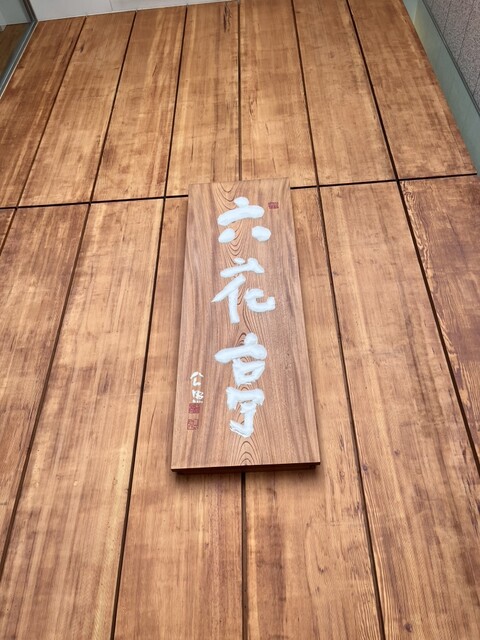 六花亭